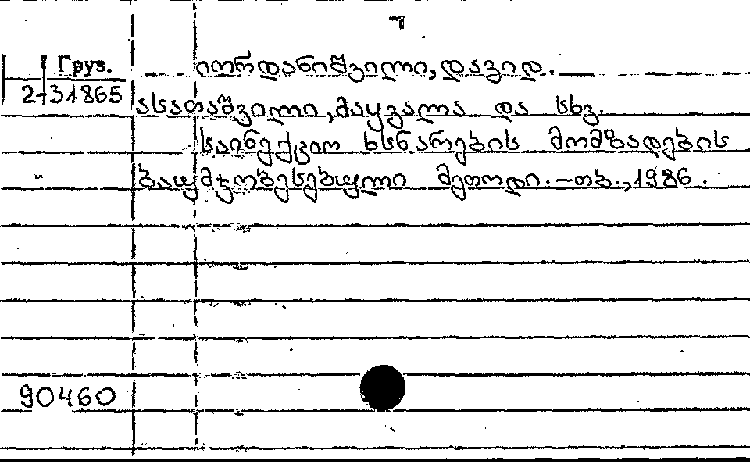 Груз.
2-31865
იორდანიშვილი, დავიდ.
ასათაშვილი, მაყვალა და სხვ.
საინექციო ხსნარების მომზადების
გაუმჯობესებული მეთოდი. – თბ., 1986.
90460